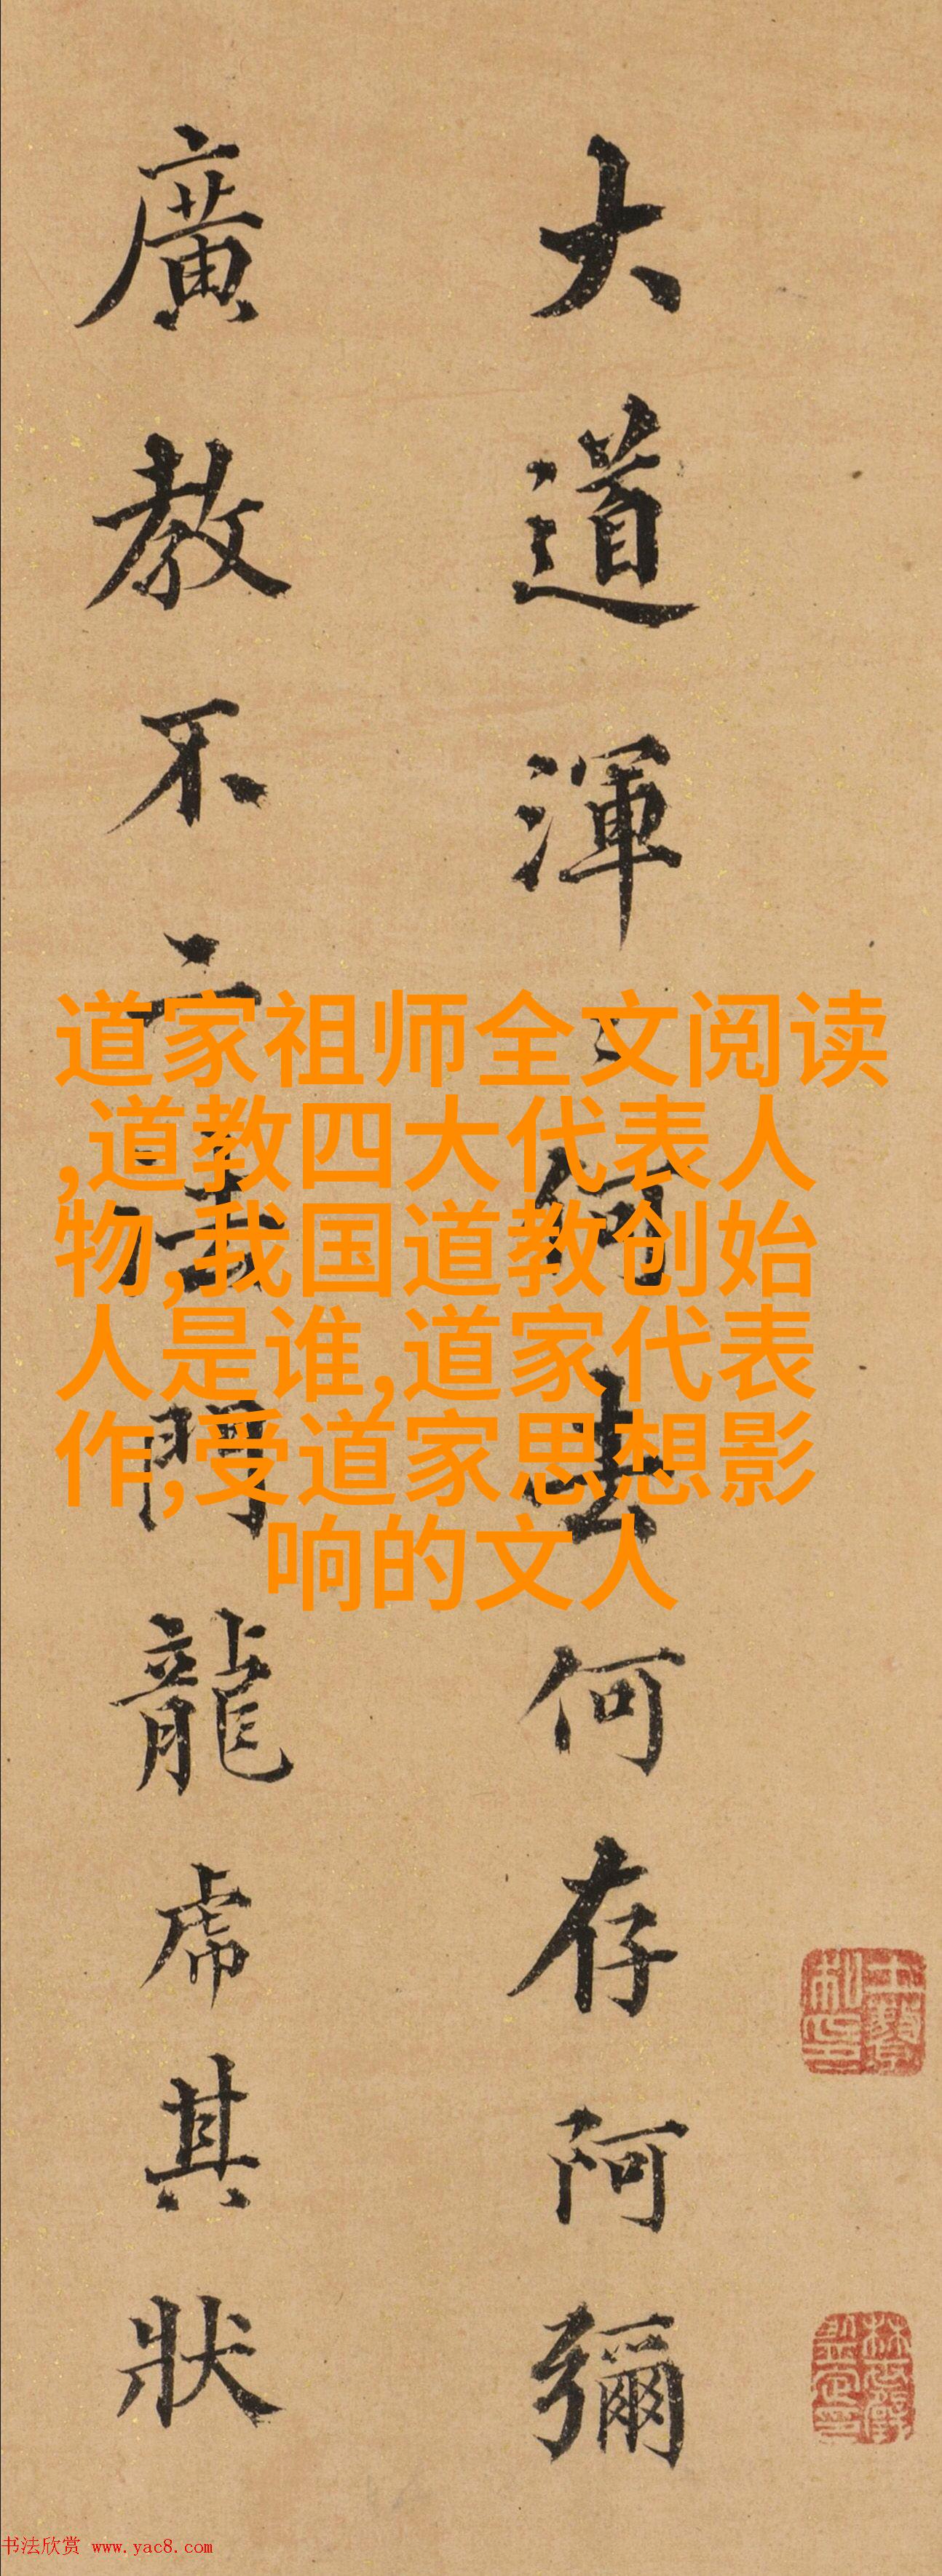 大道渾〻何去何存阿彌
廣教不二法門龍虎其狀
道家祖师全文阅读
,道教四大代表人
物,我国道教创始
人是谁,道家代表
作,受道家思想影
响的文人
书法欣赏 www.yac8.com